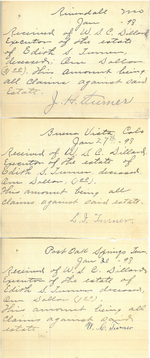 Riverdale Mo
Jan '98
Received of W. S. C. Dillard
Executor of the estate
of Edith S. Turner,
deceased, One Dollar
(1.00). This amount being
all claims against said
estate.
J. H. Turner
Buena Vista, Colo
Jan 27th '98
Received of W. S. C. Dillard
Executor of the estate of
Edith S. Turner deceased,
One Dollar. (1.00).
This amount being all
claims against said estate.
S. J. Turner
Post Oak Springs Tenn
Jan 21 '98
Received of W. S. C. Dillard
Executor of the estate of
Edith S. Turner, deceased,
One Dollar (1.00)
This amount being
all claims against said
estate
W. C. Turner